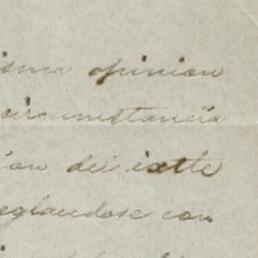 isma opinion
circumstancia
ion del ixtle
eglandose con